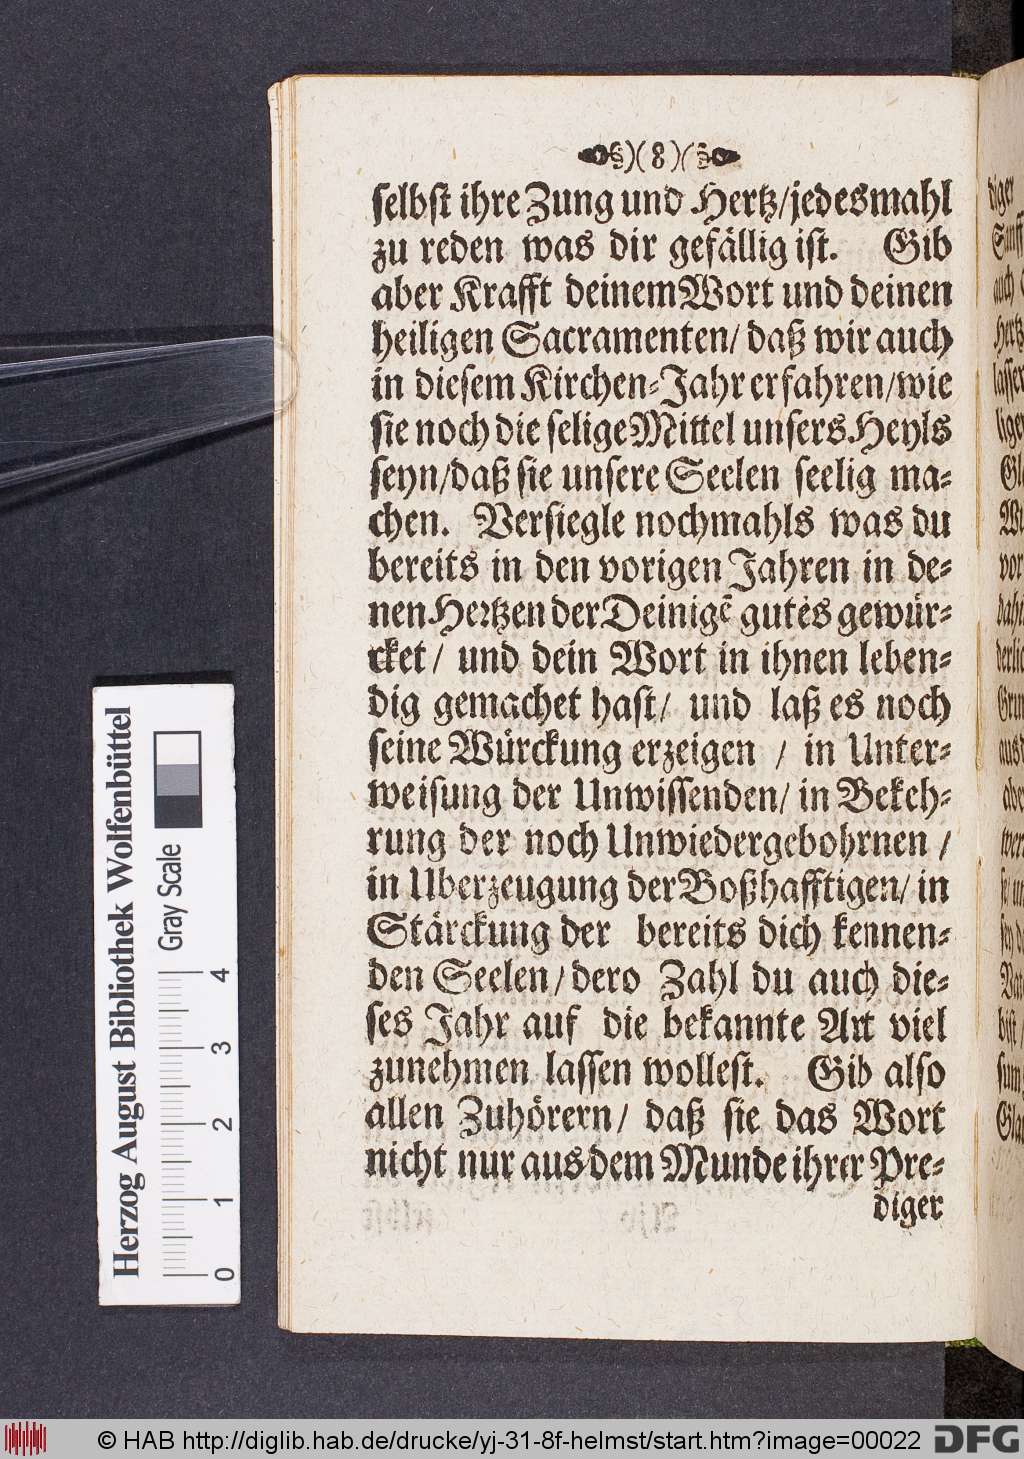 )(8)(
selbst ihre Zung und Hertz/jedesmahl
zu reden was dir gefällig ist. Gib
aber Krafft deinem Wort und deinen
heiligen Sacramenten/ daß wir auch
in diesem Kirchen-Jahr erfahren/wie
sie noch die selige Mittel unsers Heyls
seyn/daß sie unsere Seelen seelig ma-
chen. Versiegle nochmahls was du
bereits in den vorigen Jahren in de-
nen Hertzen der Deinigẽ gutes gewür-
cket/ und dein Wort in ihnen leben-
dig gemachet hast/ und laß es noch
seine Würckung erzeigen / in Unter-
weisung der Unwissenden/ in Bekeh-
rung der noch Unwiedergebohrnen /
in Uberzeugung der Boßhafftigen/ in
Stärckung der bereits dich kennen-
den Seelen/ dero Zahl du auch die-
ses Jahr auf die bekannte Art viel
zunehmen lassen wollest. Gib also
allen Zuhörern/ daß sie das Wort
nicht nur aus dem Munde ihrer Pre-
diger
Herzog August Bibliothek Wolfenbüttel
Gray Scale
0 1 2 3 4
© HAB http://diglib.hab.de/drucke/yj-31-8f-helmst/start.htm?image=00022
DFG